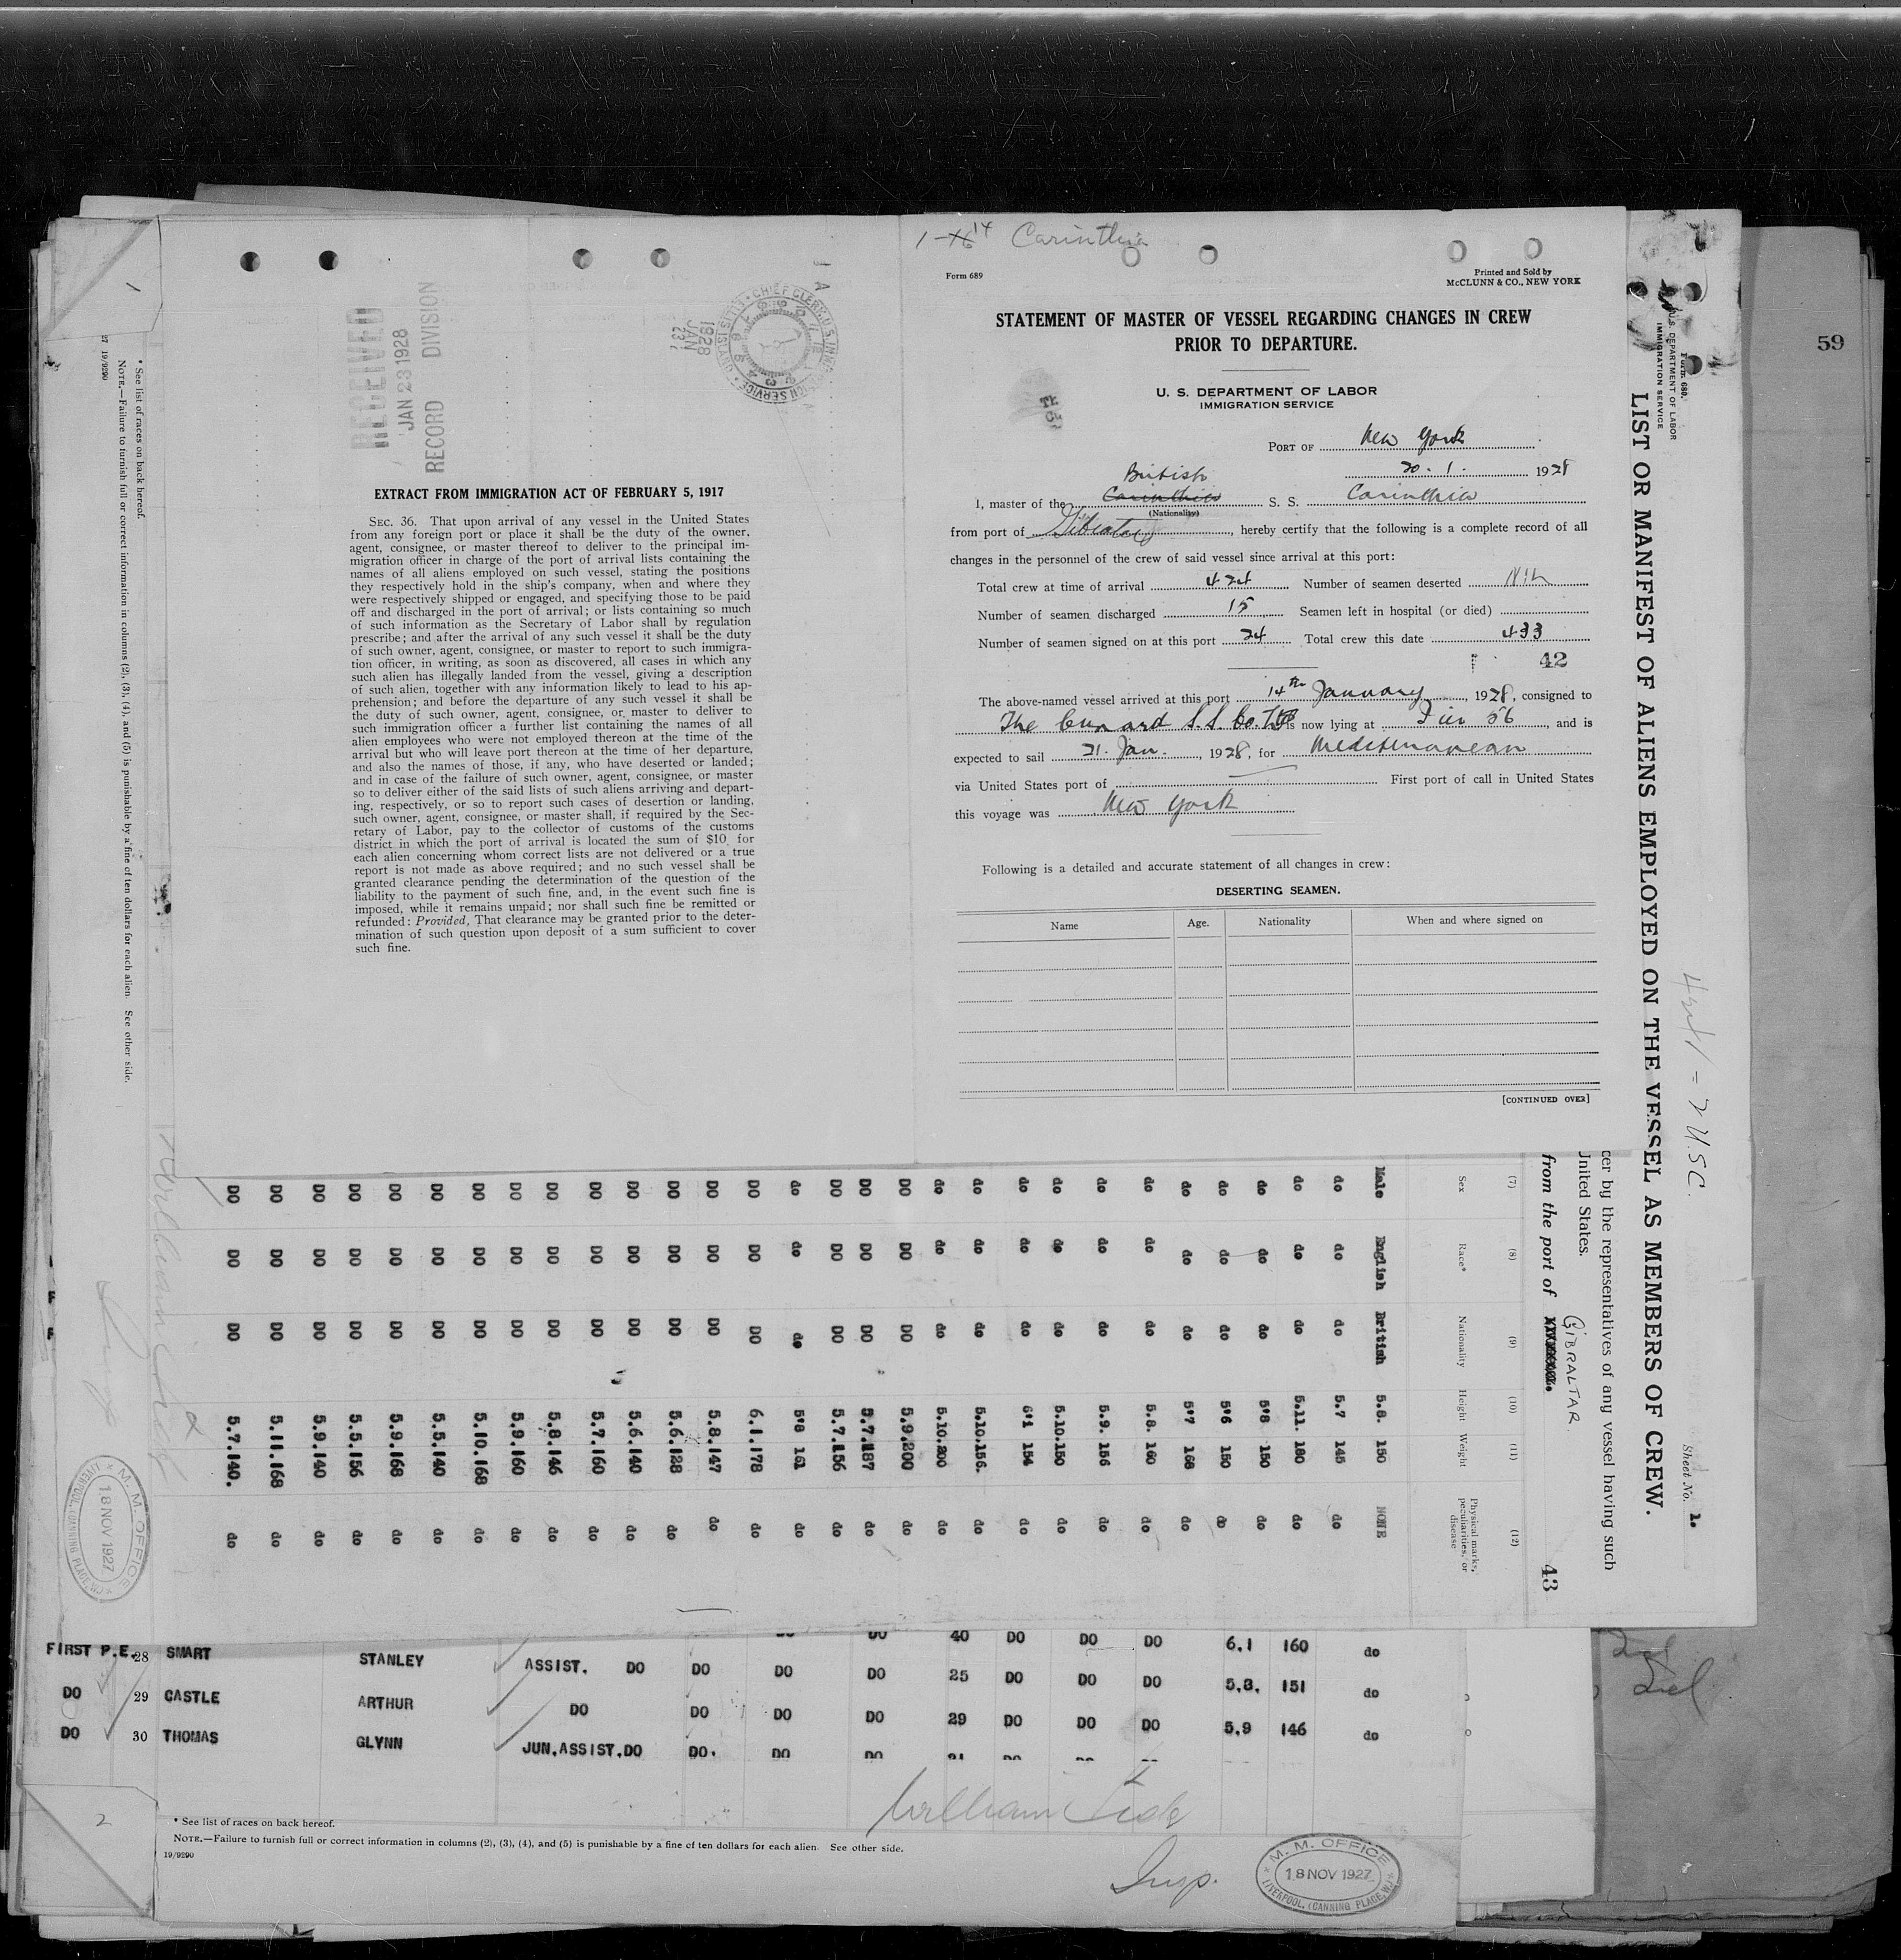 1-16 14 Carinthia
Form 689
Printed and Sold by
McCLUNN & CO., NEW YORK
STATEMENT OF MASTER OF VESSEL REGARDING CHANGES IN CREW
PRIOR TO DEPARTURE.
U. S. DEPARTMENT OF LABOR
IMMIGRATION SERVICE
PORT OF New York
20. 1. 1928
British
I, master of the Carinthia S. S. Carinthia
(Nationality)
from port of Gibraltar, hereby certify that the following is a complete record of all
changes in the personnel of the crew of said vessel since arrival at this port:
Total crew at time of arrival 424 Number of seamen deserted Nil
Number of seamen discharged 15 Seamen left in hospital (or died)
Number of seamen signed on at this port 24 Total crew this date 433
42
The above-named vessel arrived at this port 14th January, 1928, consigned to
The Cunard S.S. Co. Ltd is now lying at Pier 56, and is
expected to sail 21. Jan., 1928, for Mediterranean
via United States port of First port of call in United States
this voyage was New York
Following is a detailed and accurate statement of all changes in crew:
DESERTING SEAMEN.
Name Age. Nationality When and where signed on
[CONTINUED OVER]
RECEIVED
JAN 23 1928
RECORD DIVISION
1928
JAN
23
EXTRACT FROM IMMIGRATION ACT OF FEBRUARY 5, 1917
SEC. 36. That upon arrival of any vessel in the United States
from any foreign port or place it shall be the duty of the owner,
agent, consignee, or master thereof to deliver to the principal im-
migration officer in charge of the port of arrival lists containing the
names of all aliens employed on such vessel, stating the positions
they respectively hold in the ship's company, when and where they
were respectively shipped or engaged, and specifying those to be paid
off and discharged in the port of arrival; or lists containing so much
of such information as the Secretary of Labor shall by regulation
prescribe; and after the arrival of any such vessel it shall be the duty
of such owner, agent, consignee, or master to report to such immigra-
tion officer, in writing, as soon as discovered, all cases in which any
such alien has illegally landed from the vessel, giving a description
of such alien, together with any information likely to lead to his ap-
prehension; and before the departure of any such vessel it shall be
the duty of such owner, agent, consignee, or master to deliver to
such immigration officer a further list containing the names of all
alien employees who were not employed thereon at the time of the
arrival but who will leave port thereon at the time of her departure,
and also the names of those, if any, who have deserted or landed;
and in case of the failure of such owner, agent, consignee, or master
so to deliver either of the said lists of such aliens arriving and depart-
ing, respectively, or so to report such cases of desertion or landing,
such owner, agent, consignee, or master shall, if required by the Sec-
retary of Labor, pay to the collector of customs of the customs
district in which the port of arrival is located the sum of $10 for
each alien concerning whom correct lists are not delivered or a true
report is not made as above required; and no such vessel shall be
granted clearance pending the determination of the question of the
liability to the payment of such fine, and, in the event such fine is
imposed, while it remains unpaid; nor shall such fine be remitted or
refunded: Provided, That clearance may be granted prior to the deter-
mination of such question upon deposit of a sum sufficient to cover
such fine.
59
Form 680.
U.S. DEPARTMENT OF LABOR
IMMIGRATION SERVICE
Sheet No. 1.
LIST OR MANIFEST OF ALIENS EMPLOYED ON THE VESSEL AS MEMBERS OF CREW.
cer by the representatives of any vessel having such
United States.
GIBRALTAR
from the port of
43
(7) (8) (9) (10) (11) (12)
Sex Race* Nationality Height Weight Physical marks, peculiarities, or disease
Male English British 5.8. 150 NONE
do do do 5.7 145 do
do do do 5.11. 180 do
do do do 5'8 150 do
do do do 5'6 150 do
do do do 5'7 168 do
do do do 5.8. 160 do
do do do 5.9. 156 do
do do do 5.10.150 do
do do do 6'1 154 do
do do do 5.10.156. do
do do do 5.10.200 do
DO DO DO 5.9.200 do
DO DO DO 5.7.187 do
DO DO DO 5.7.156 do
do do do 5'8 161 do
DO DO DO 6.1.178 do
DO DO DO 5.8.147 do
DO DO DO 5.6.128 do
DO DO DO 5.6.140 do
DO DO DO 5.7.160 do
DO DO DO 5.8.146 do
DO DO DO 5.9.160 do
DO DO DO 5.10.168 do
DO DO DO 5.5.140 do
DO DO DO 5.9.168 do
DO DO DO 5.5.156 do
DO DO DO 5.9.140 do
DO DO DO 5.11.168 do
DO DO DO 5.7.140. do
1
* See list of races on back hereof.
NOTE.—Failure to furnish full or correct information in columns (2), (3), (4), and (5) is punishable by a fine of ten dollars for each alien. See other side.
27 19/9290
M. M. OFFICE
18 NOV 1927
LIVERPOOL, (CANNING PLACE, WJ)
FIRST P.E. 28 SMART STANLEY ASSIST. DO DO DO DO 40 DO DO DO 6.1 160 do
DO 29 CASTLE ARTHUR DO DO DO DO 25 DO DO DO 5.8. 151 do
DO 30 THOMAS GLYNN JUN.ASSIST.DO DO. DO DO 29 DO DO DO 5.9 146 do
2
* See list of races on back hereof.
NOTE.—Failure to furnish full or correct information in columns (2), (3), (4), and (5) is punishable by a fine of ten dollars for each alien. See other side.
19/9290
Insp.
M. M. OFFICE
18 NOV 1927
LIVERPOOL, (CANNING PLACE, WJ)